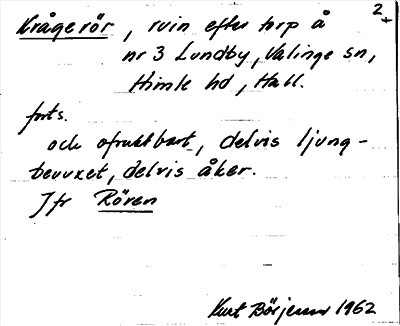 2
Krågerör, ruin efter torp å
nr 3 Lundby, Valinge sn,
Himle hd, Hall.
forts.
och ofruktbart, delvis ljung-
bevuxet, delvis åker.
Jfr Rören
Kurt Börjesson 1962